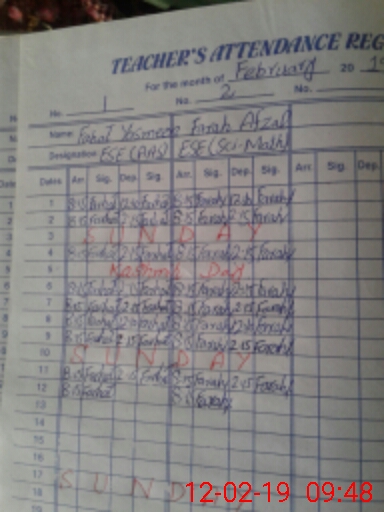 TEACHER'S ATTENDANCE REG
For the month of February 20 19
No. 1 No. 2 No.
Name Farah Afzal
Designation ESE (AAS) ESE (Sci-Math)
Dates Arr. Sig. Dep. Sig. Arr. Sig. Dep. Sig. Arr. Sig. Dep.
1 8:15 Farhat Farhat 8:15 Farah Farah
2 8:15 Farhat 2:15 Farhat 8:15 Farah 2:15 Farah
3 SUNDAY
4 8:15 Farhat 2:15 Farhat 8:15 Farah 2:15 Farah
5 Kashmir Day
6 8:15 Farhat 2:15 Farhat 8:15 Farah 2:15 Farah
7 8:15 Farhat 2:15 Farhat 8:15 Farah 2:15 Farah
8 8:15 Farhat Farhat 8:15 Farah Farah
9 8:15 Farhat 2:15 Farhat 8:15 Farah 2:15 Farah
10 SUNDAY
11 8:15 Farhat 2:15 Farhat 8:15 Farah 2:15 Farah
12 8:15 Farhat 8:15 Farah
13
14
15
16
17 SUNDAY
18
12-02-19 09:48